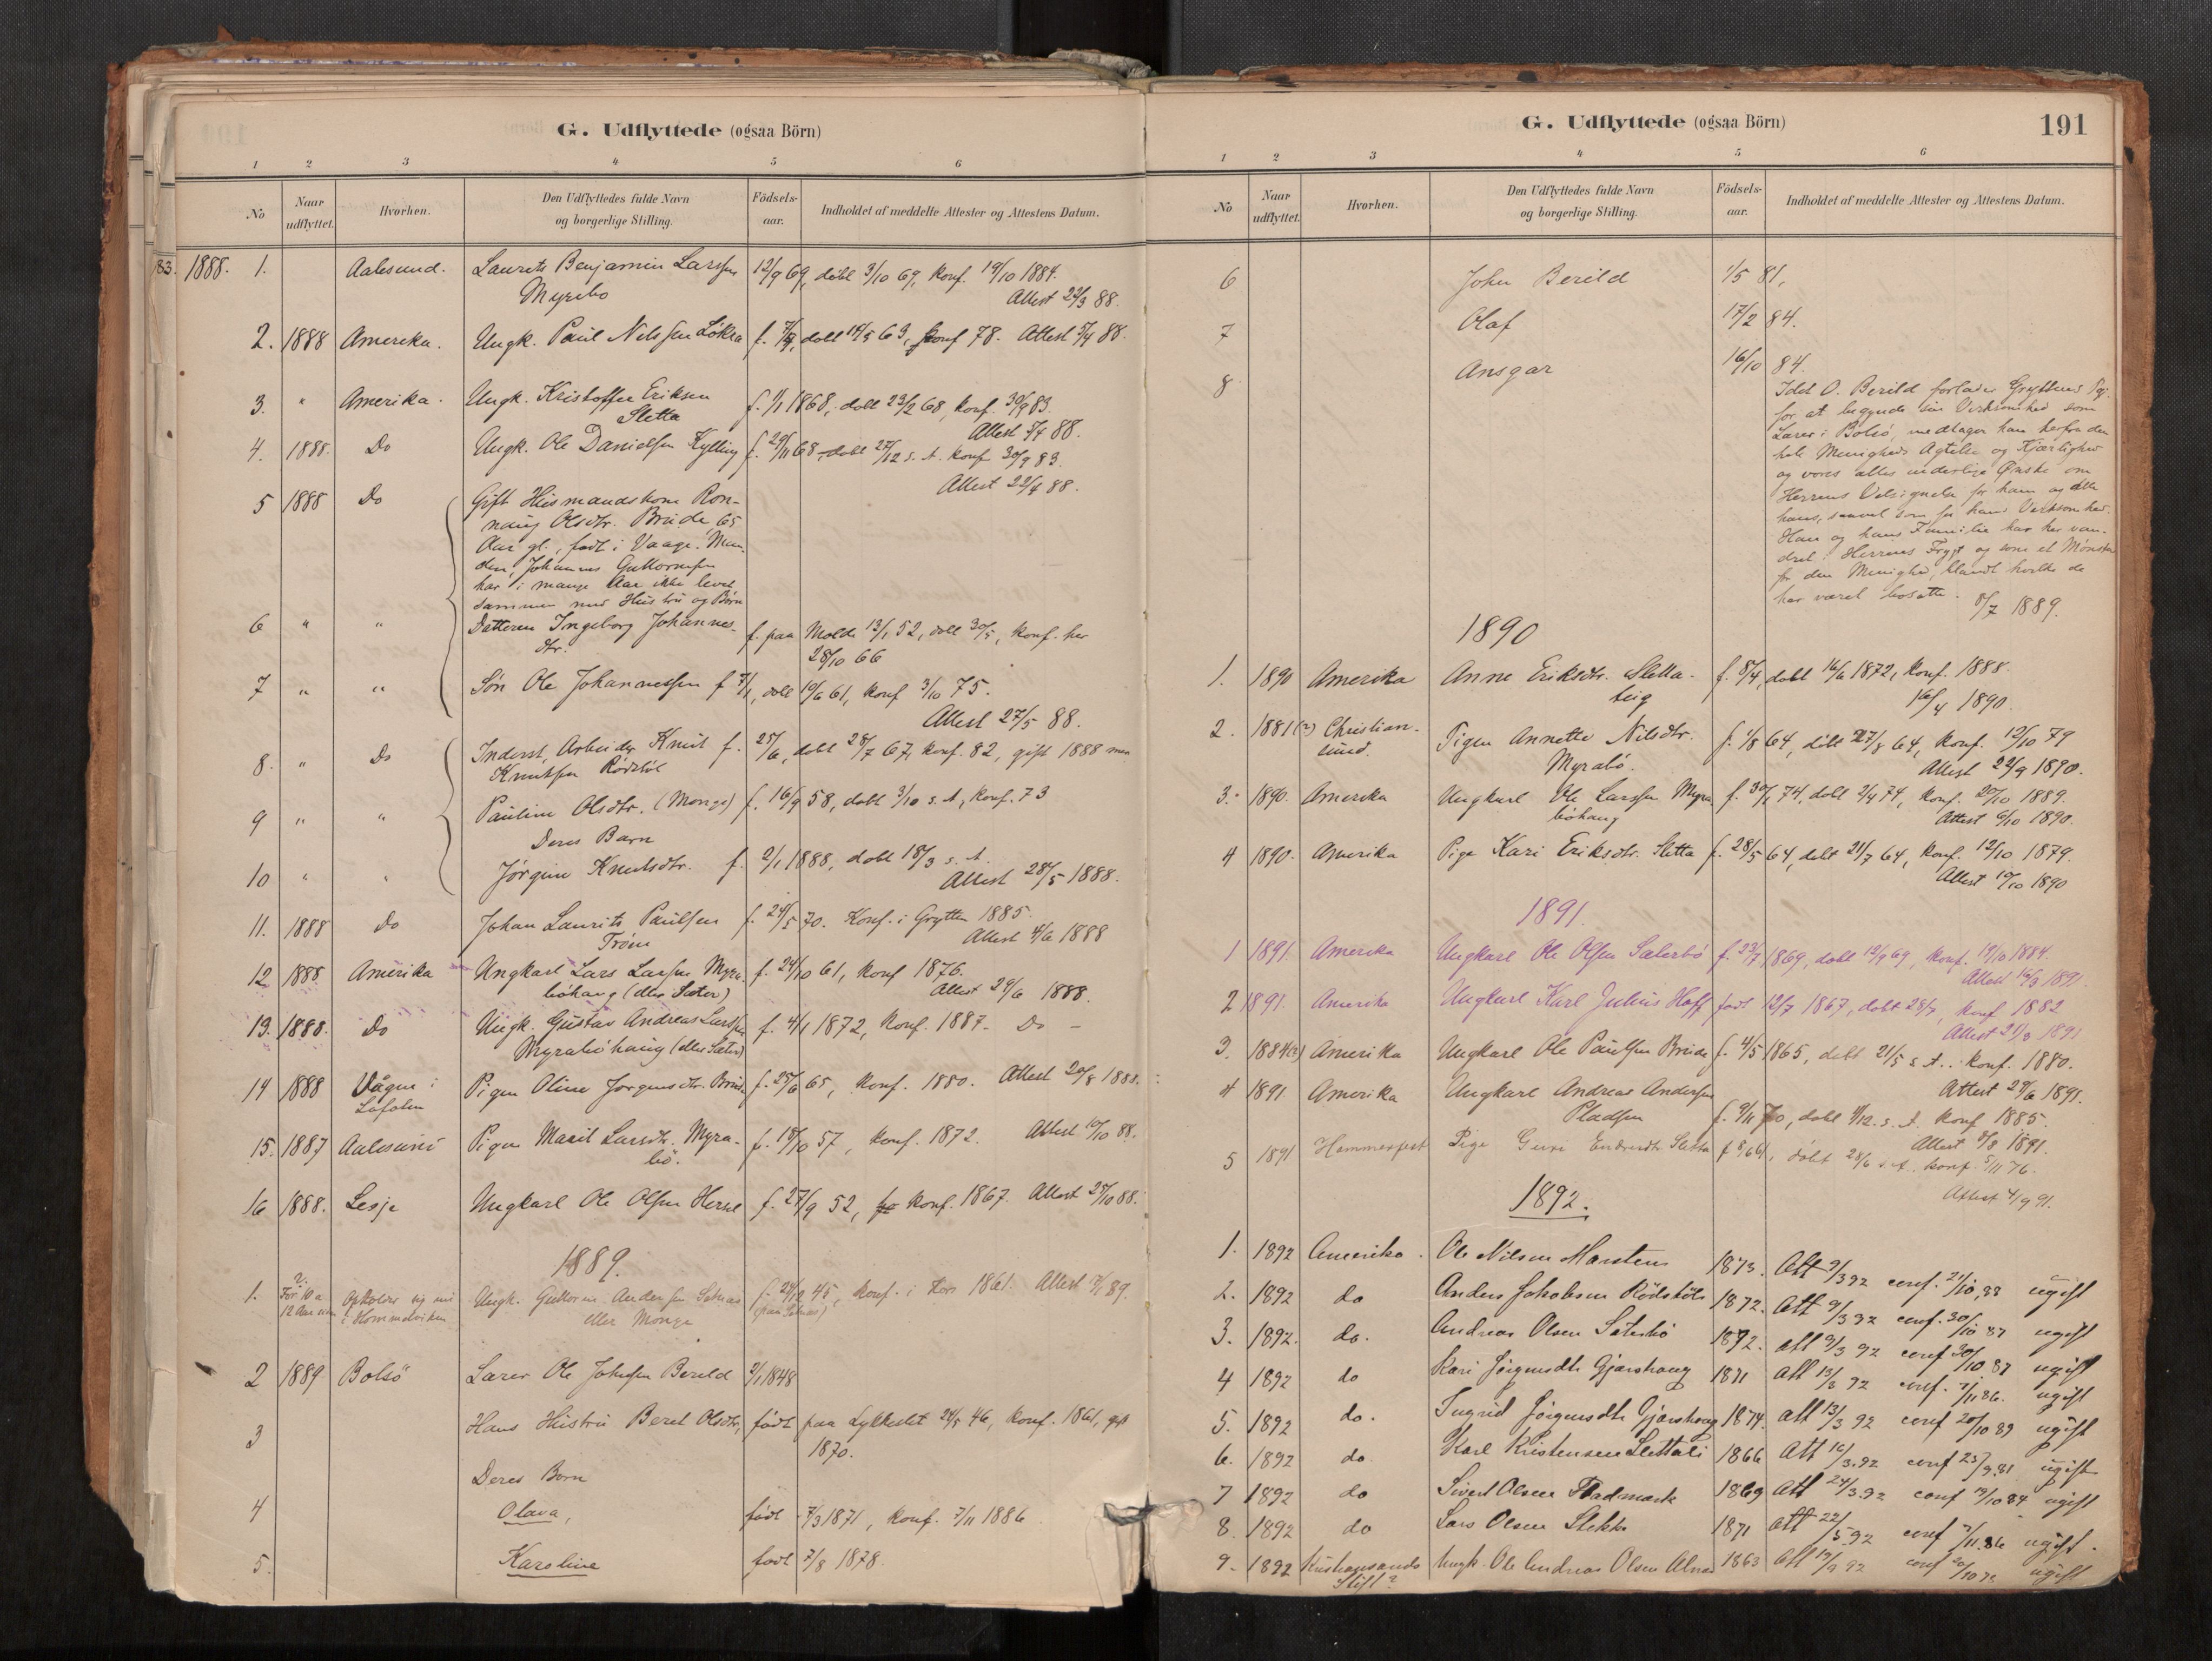 G. Udflyttede (ogsaa Börn)
1 2 3 4 5 6
No
Naar udflyttet.
Hvorhen.
Den Udflyttedes fulde Navn og borgerlige Stilling.
Födsels-aar.
Indholdet af meddelte Attester og Attestens Datum.
83. 1888. 1. Aalesund. Laurits Benjamin Larssen 12/9 69, døbt 3/10 69, konf. 19/10 1884.
Myrebø Attest 22/3 88.
2. 1888 Amerika. Ungk. Paul Nilssen Løkra døbt 19/5 63, konf 78. Attest 3/4 88.
3. " Amerika. Ungk. Kristoffer Eriksen f. 1/1 1868, døbt 23/2 68, konf. 30/9 83.
Sletta Attest 3/4 88.
4. 1888. Do Ungk. Ole Danielsen Kylling f. 29/11 68, døbt 27/12 s. A. konf 30/9 83.
Attest 22/4 88.
5 1888 Do Gift Husmandskone Ron-
naug Olsdtr. Brude, 65
Aar gl., født i Vaage. Man-
den, Johannes Guttormsen
har i mange Aar ikke levet
sammen med Hustru og Børn
6 " " Datteren Ingeborg Johannes- f. paa Molde 13/1 52, døbt 30/5, konf. her
dtr. 28/10 66
7 " " Søn Ole Johannessen f 7/1, døbt 19/6 61, konf 3/10 75.
Attest 27/5 88.
8. " Do Inderst, Arbeider Knut f. 25/6, døbt 28/7 67, konf. 82, gift 1888 med
Knutsen Rødstøl
9 " " Pauline Olsdtr. (Monge) f. 16/9 58, døbt 3/10 s. A, konf. 73
Deres Barn
10 " " Jørgine Knutsdtr. f. 2/1 1888, døbt 18/3 s. A.
Attest 28/5 1888.
11. 1888 Do Johan Laurits Paulsen f. 24/5 70. Konf. i Grytten 1885.
Attest 4/6 1888
12 1888. Amerika Ungkarl Lars Larssen Myra- f. 24/10 61, konf 1876.
bøhaug (eller Sæter) Attest 29/6 1888.
13. 1888. Do Ungk. Gustav Andreas Larssen f. 4/1 1872, konf. 1887. Do -
Myrabøhaug (eller Sæter)
14 1888 Vågen i Pigen Oline Jørgensdtr. Brude f. 25/6 65, konf. 1880. Attest 20/8 1888.
Lofoten
15. 1887 Aalesund Pigen Marit Larsdtr. Myra- f. 18/10 57, konf. 1872. Attest 10/10 88.
bø.
16 1888. Lesje Ungkarl Ole Olsen Hersel f. 27/9 52, konf. 1867. Attest 25/10 88.
1889.
1. ? For 10 a Opholder sig nu Ungk. Guttorm Andersen Sætnæs f. 24/12 45, konf. i Kors 1861. Attest 3/1 89.
12 Aar siden i Hommelviken eller Monge
2 1889 Bolsø Lærer Ole Johnsen Berild 2/1 1848
3 Hans Hustru Beret Olsdtr, født paa Lykkeslet 24/5 46, konf. 1861, gift
1870.
Deres Børn
4 Olava, født 7/3 1871, konf. 7/11 1886
5. Karoline født 7/8 1878.
G. Udflyttede (ogsaa Börn) 191
1 2 3 4 5 6
No
Naar udflyttet.
Hvorhen.
Den Udflyttedes fulde Navn og borgerlige Stilling.
Födsels-aar.
Indholdet af meddelte Attester og Attestens Datum.
6 John Berild 1/5 81,
7 Olaf 17/2 84.
8 Ansgar 16/10 84.
Idet O. Berild forlader Gryttens Pgj.
for at begynde sin Virksomhed som
Lærer i Bolsø, medtager han herfra den
hele Menigheds Agtelse og Kjærlighed
og vores alles inderlige Ønske om
Herrens Velsignelse for ham og alle
hans, saavel som for hans Virksomhed.
Han og hans Familie har her van-
dret i Herrens Frygt og som et Mønster
for den Menighed, blandt hvilke de
har været bosatte. 8/7 1889.
1890
1. 1890 Amerika Anne Eriksdtr. Sletta- f. 8/4, døbt 16/6 1872, konf. 1888.
teig 16/4 1890.
2. 1881(?) Christian- Pigen Annette Nilsdtr. f. 1/8 64, døbt 27/8 64, konf. 12/10 79
sund. Myrabø. Attest 22/9 1890.
3. 1890. Amerika Ungkarl Ole Larssen Myra f. 30/1 74, døbt 2/4 74, konf. 20/10 1889.
bøhaug Attest 6/10 1890.
4 1890. Amerika Pige Kari Eriksdtr. Sletta f. 28/5 64, døbt 21/7 64, konf. 12/10 1879.
Attest 10/10 1890
1891.
1 1891. Amerika Ungkarl Ole Olsen Sæterbø f. 23/7 1869, døbt 12/9 69, konf. 19/10 1884.
Attest 16/3 1891.
2 1891. Amerika Ungkarl Karl Julius Hoff født 12/7 1867, døbt 28/7, konf 1882
Attest 21/3 1891
3. 1884(?) Amerika Ungkarl Ole Paulsen Brude f. 4/5 1865, døbt 21/5 s. A. konf. 1880.
Attest 29/6 1891.
4 1891. Amerika Ungkarl Andreas Andersen
Pladsen f. 9/11 70, døbt 4/12. s. A. konf 1885.
Attest 8/8 1891.
5 1891 Hammerfest Pige Guri Endresdtr. Sletta døbt 28/6 s. A. konf. 5/11 76.
Attest 4/9 91.
1892.
1. 1892 Amerika. Ole Nilsen Marstein 1873. Att 9/3 92 conf. 21/10,88 ugift
2. 1892 do Anders Jakobsen Rødstøl 1872. Att 9/3 92 conf. 30/10 87 ugift
3. 1892. do. Andreas Olsen Sæterbø 1872. att 9/3 92 conf 30/10 87 ugift
4 1892 do Kari Jørgensdtr Gjørshaug 1871 att 13/3 92 conf. 7/11 86. ugift
5. 1892 do. Ingrid Jørgensdtr Gjørshaug 1874. att 13/3 92 conf 20/10 89 ugift
6. 1892 do. Karl Kristensen Slettali 1866 Att 16/3.92 conf 25/9.81 ugift
7 1892 do Sivert Olsen Fladmark 1869 att 24/3.92 conf 19/10 84 ugift
8. 1892 do Lars Olsen Slekka 1871 Att 22/5.92 conf 7/11.86 ugift.
9. 1892 Kristiansands Ungk. Ole Andreas Olsen Alnæs 1863 Att 19/9 92 conf ugift
Stift?